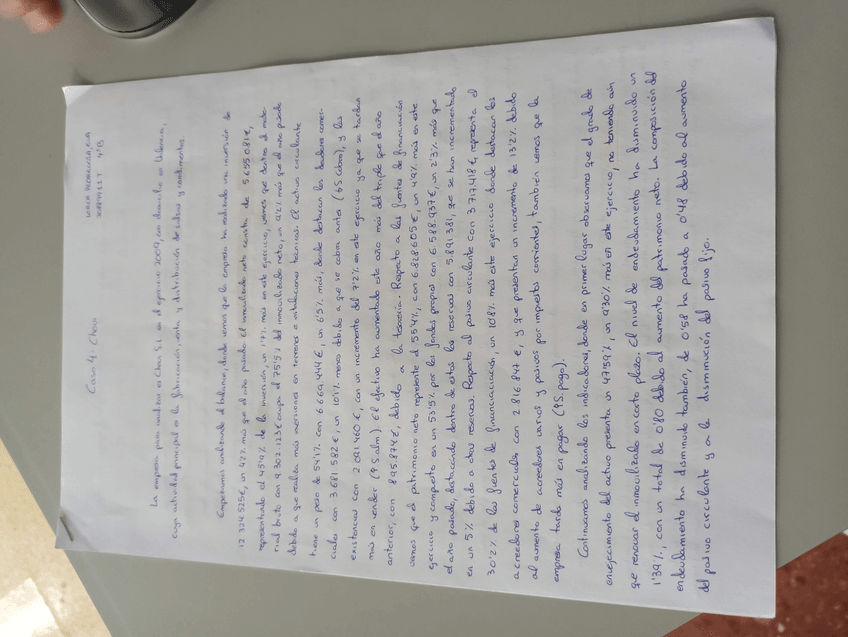 Caso 4: Choví
La empresa para analizar es Choví S.L. en el ejercicio 2009, con domicilio en Valencia,
cuya actividad principal es la fabricación, venta y distribución de salsas y condimentos.
Empezamos analizando el balance, donde vemos que la empresa ha realizado una inversión de
12.324.525€, un 4'2% más que el año pasado. El inmovilizado neto consta de 5.655.081€,
representando el 45'9% de la inversión, un 1'7% más en este ejercicio, vemos que dentro del mate-
rial bruto con 9.302.123€ ocupa el 75'5% del inmovilizado neto, un 9'2% más que el año pasado
debido a que realiza más inversiones en terrenos e instalaciones técnicas. El activo circulante
tiene un peso de 54'1% con 6.669.444€, un 6'5% más, donde destacan los deudores comer-
ciales con 3.681.582€, un 10'1% menos debido a que se cobra antes (↓S cobro), y las
existencias con 2.091.460€, con un incremento del 7'2% en este ejercicio ya que se tardan
más en vender (↑S.alm). El efectivo ha aumentado este año más del triple que el año
anterior, con 895.874€, debido a la tesorería. Respecto a las fuentes de financiación
vemos que el patrimonio neto representa el 55'4%, con 6.828.605€, un 4'9% más en este
ejercicio y compuesto en un 53'5% por los fondos propios con 6.588.937€, un 2'3% más que
el año pasado, destacando dentro de estos las reservas con 5.891.381, que se han incrementado
en un 5% debido a otras reservas. Respecto al pasivo circulante con 3.717.418€, representa el
30'2% de las fuentes de financiación, un 10'8% más este ejercicio donde destacan los
acreedores comerciales con 2.816.847€, y que presentan un incremento de 13'2% debido
al aumento de acreedores varios y pasivos por impuestos corrientes, también vemos que la
empresa tarda más en pagar (↑S.pago).
Continuamos analizando los indicadores, donde en primer lugar observamos que el grado de
envejecimiento del activo presenta un 47'59%, un 9'30% más en este ejercicio, no teniendo aún
que renovar el inmovilizado en corto plazo. El nivel de endeudamiento ha disminuido un
1'39%, con un total de 0'80 debido al aumento del patrimonio neto. La composición del
endeudamiento ha disminuido también, de 0'58 ha pasado a 0'48 debido al aumento
del pasivo circulante y a la disminución del pasivo fijo.